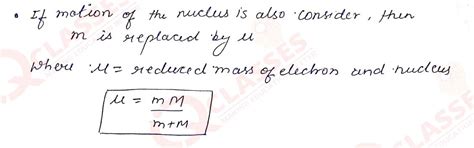 • If motion of the nucleus is also consider, then
m is replaced by μ
where μ = reduced mass of electron and nucleus
μ = mM
m+M